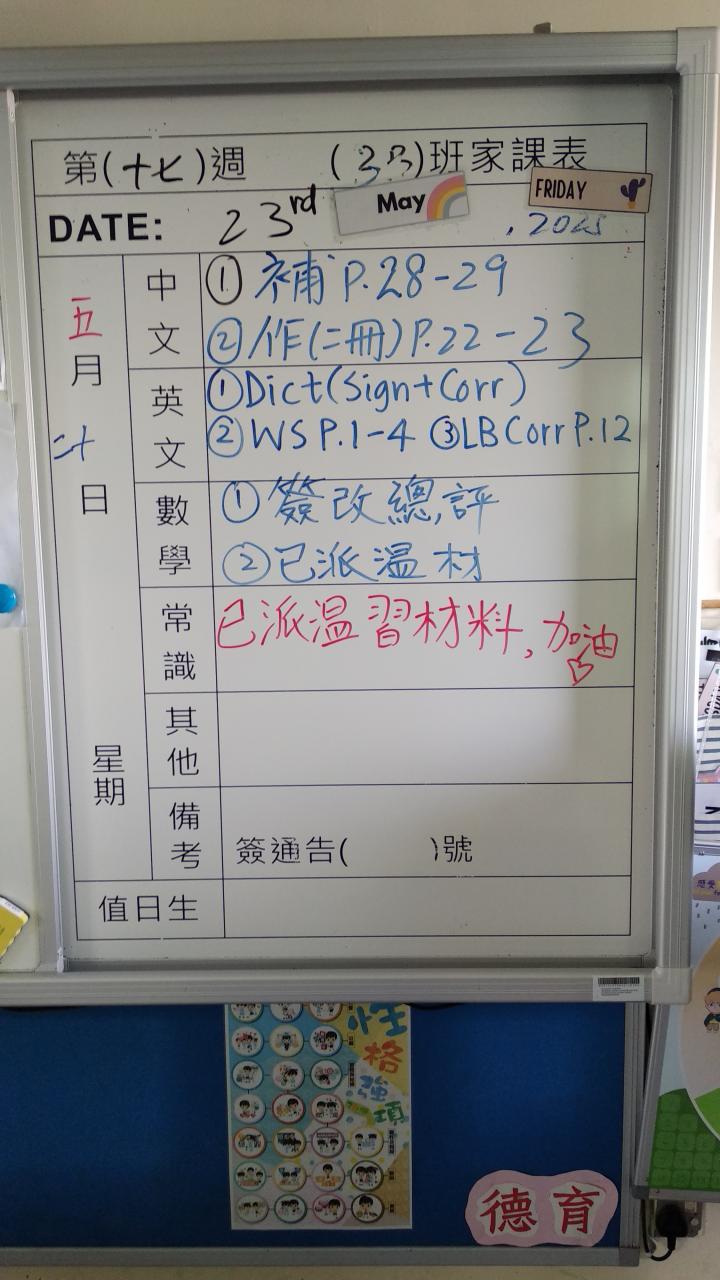 第(十七)週 (3B)班家課表
DATE: 23rd May FRIDAY , 2025
五月 日
星期
中文
① 補 P.28-29
② 作(二冊) P.22-23
英文
① Dict (Sign+Corr)
② WS P.1-4 ③ LB Corr P.12
數學
① 簽改總評
② 已派溫材
常識
已派溫習材料, 加油
其他
備考
簽通告( )號
值日生
性格強項
德育